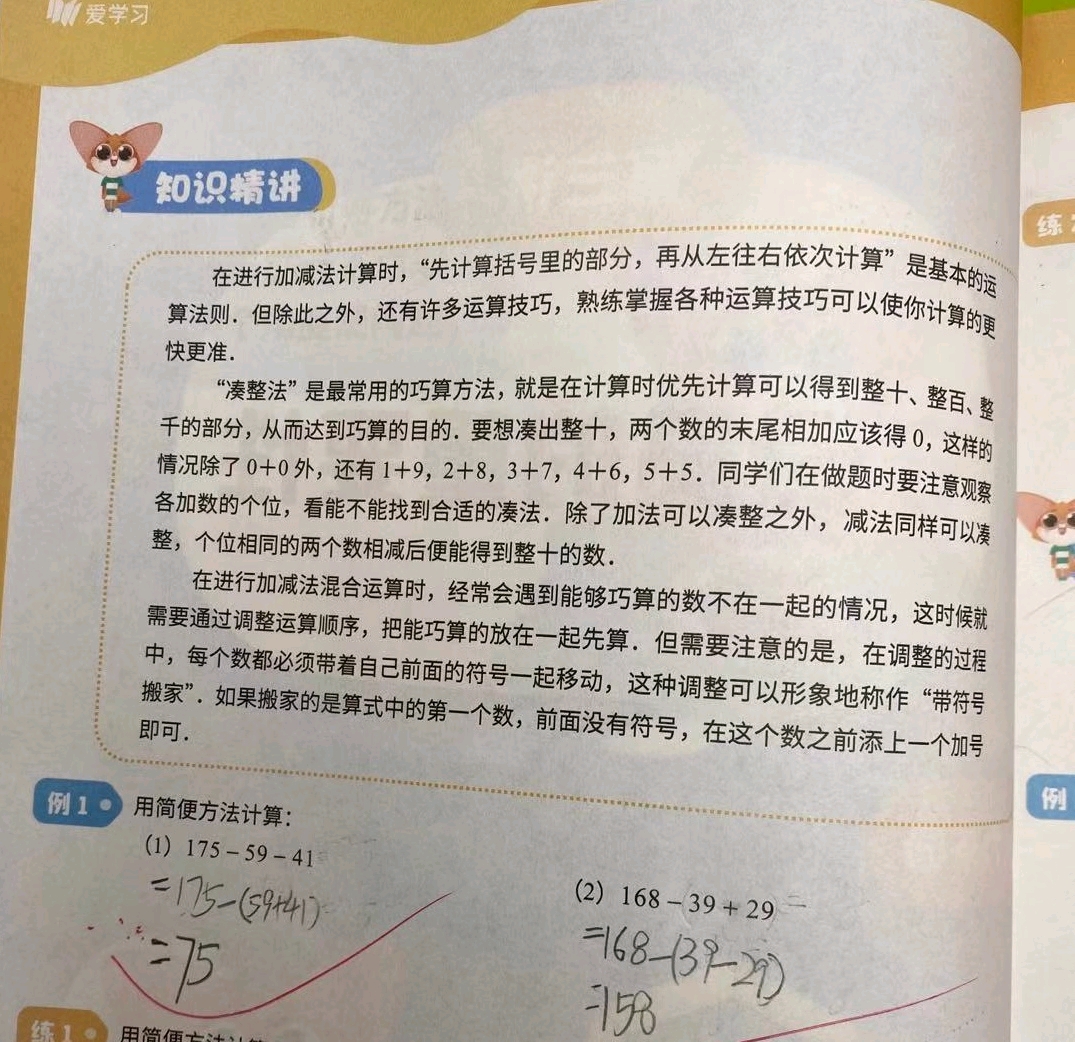 爱学习
知识精讲
在进行加减法计算时，“先计算括号里的部分，再从左往右依次计算”是基本的运
算法则．但除此之外，还有许多运算技巧，熟练掌握各种运算技巧可以使你计算的更
快更准．
“凑整法”是最常用的巧算方法，就是在计算时优先计算可以得到整十、整百、整
千的部分，从而达到巧算的目的．要想凑出整十，两个数的末尾相加应该得 0，这样的
情况除了 0+0 外，还有 1+9，2+8，3+7，4+6，5+5．同学们在做题时要注意观察
各加数的个位，看能不能找到合适的凑法．除了加法可以凑整之外，减法同样可以凑
整，个位相同的两个数相减后便能得到整十的数．
在进行加减法混合运算时，经常会遇到能够巧算的数不在一起的情况，这时候就
需要通过调整运算顺序，把能巧算的放在一起先算．但需要注意的是，在调整的过程
中，每个数都必须带着自己前面的符号一起移动，这种调整可以形象地称作“带符号
搬家”．如果搬家的是算式中的第一个数，前面没有符号，在这个数之前添上一个加号
即可．
例1 用简便方法计算：
（1）175－59－41
=175-(59+41)
=75
（2）168－39＋29 =
=168-(39-29)
=158
练1 用简便方法计算
练
例